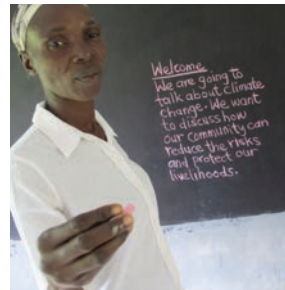 Welcome
We are going to
talk about climate
change. We want
to discuss how
our community can
reduce the risks
and protect our
livelihoods.